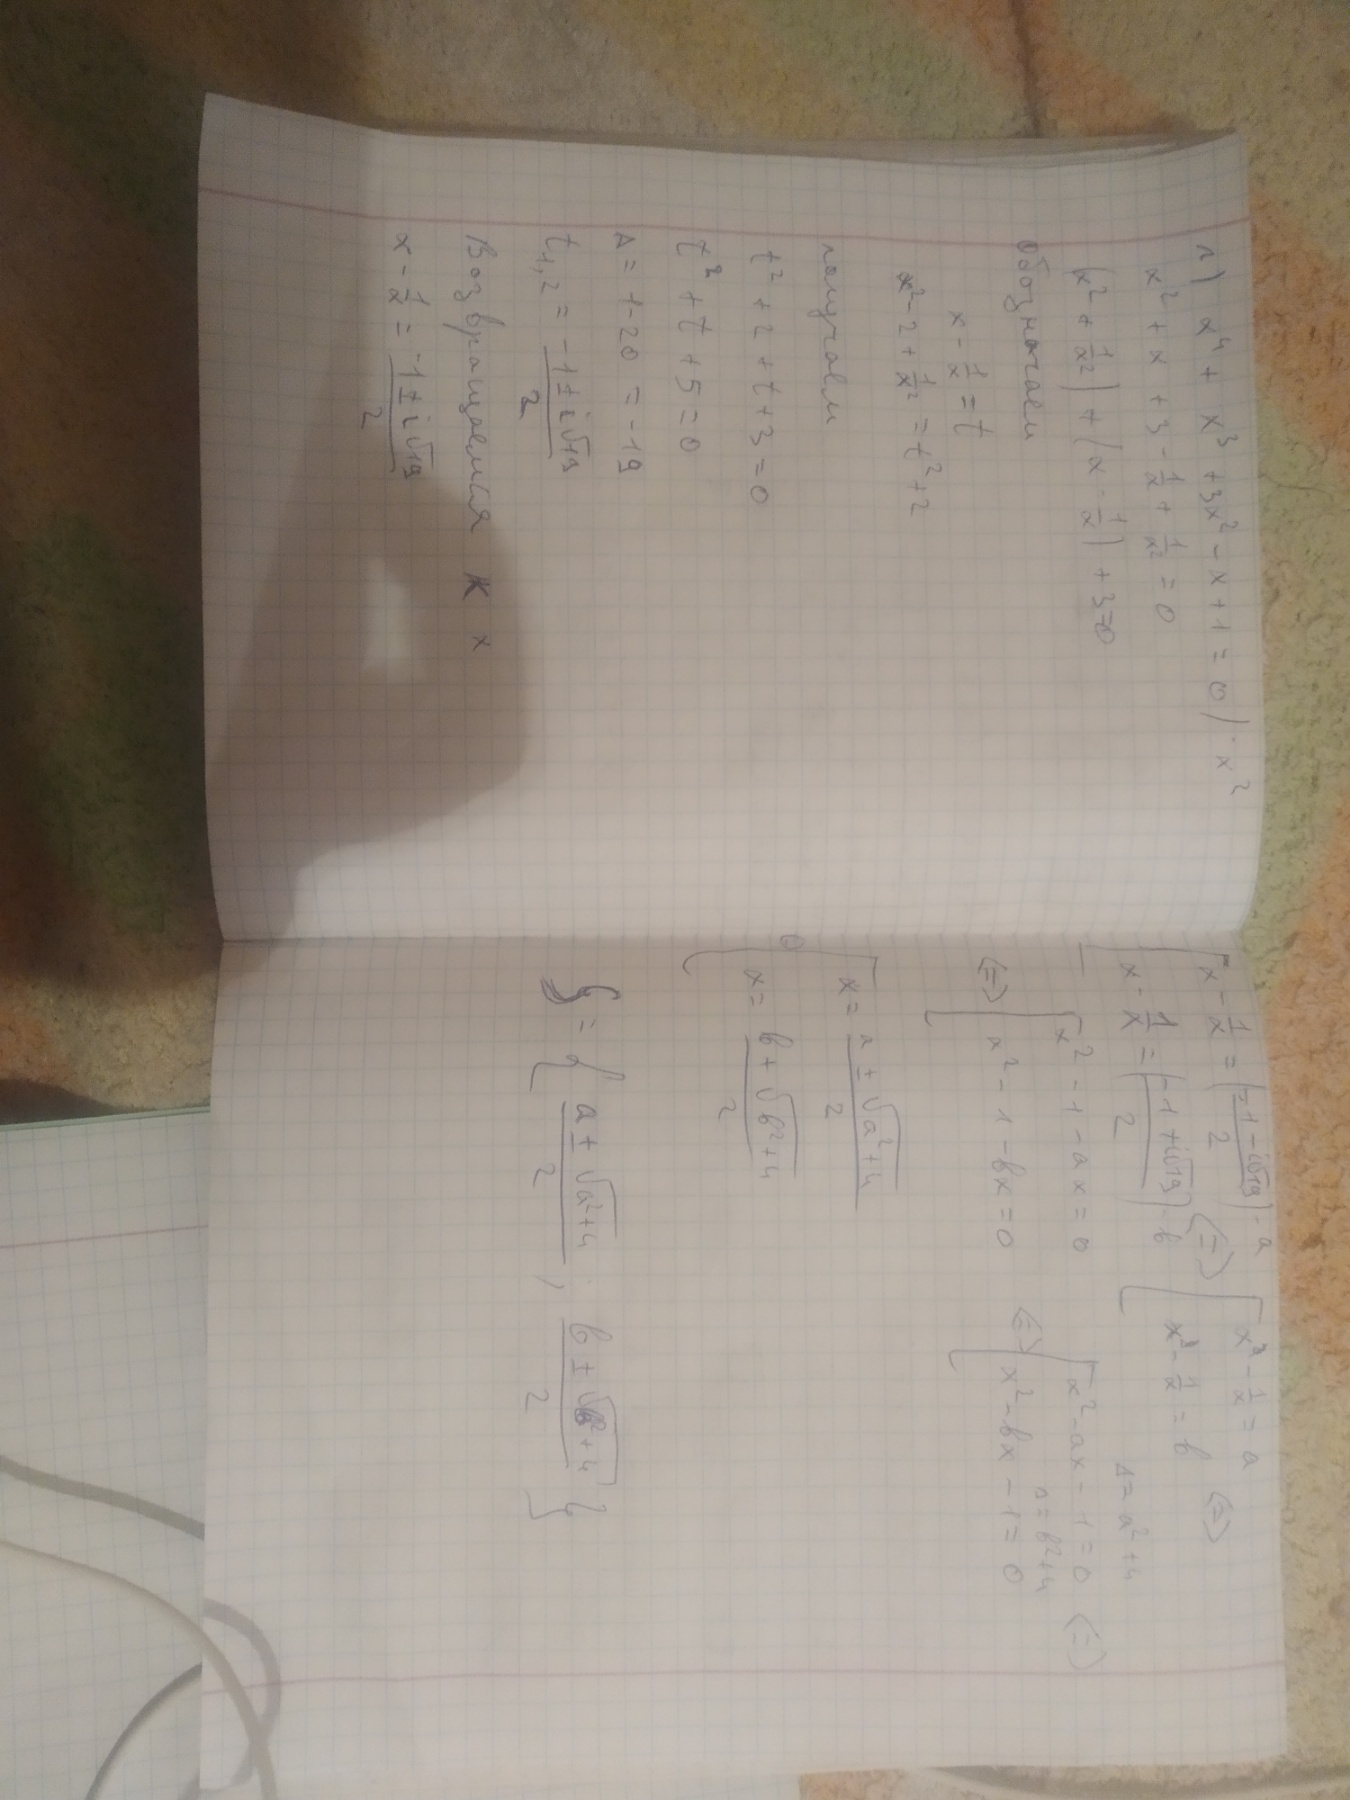 л) x⁴ + x³ + 3x² - x + 1 = 0 | : x²
x² + x + 3 - 1/x + 1/x² = 0
(x² + 1/x²) + (x - 1/x) + 3 = 0
Обозначаем
x - 1/x = t
x² - 2 + 1/x² = t² + 2
получаем
t² + 2 + t + 3 = 0
t² + t + 5 = 0
Δ = 1 - 20 = -19
t₁,₂ = (-1 ± i√19)/2
Возвращаемся к x
x - 1/x = (-1 ± i√19)/2
[ x - 1/x = (-1 - i√19)/2 - a (=) [ x² - 1/x = a (=)
x - 1/x = (-1 + i√19)/2 - b x² - 1/x = b
Δ = a² + 4
(=) [ x² - 1 - ax = 0 (=) [ x² - ax - 1 = 0 (=)
Δ = b² + 4
x² - 1 - bx = 0 x² - bx - 1 = 0
[ x = (a ± √a² + 4)/2
x = (b + √b² + 4)/2
S = { (a ± √a² + 4)/2 , (b ± √b² + 4)/2 }